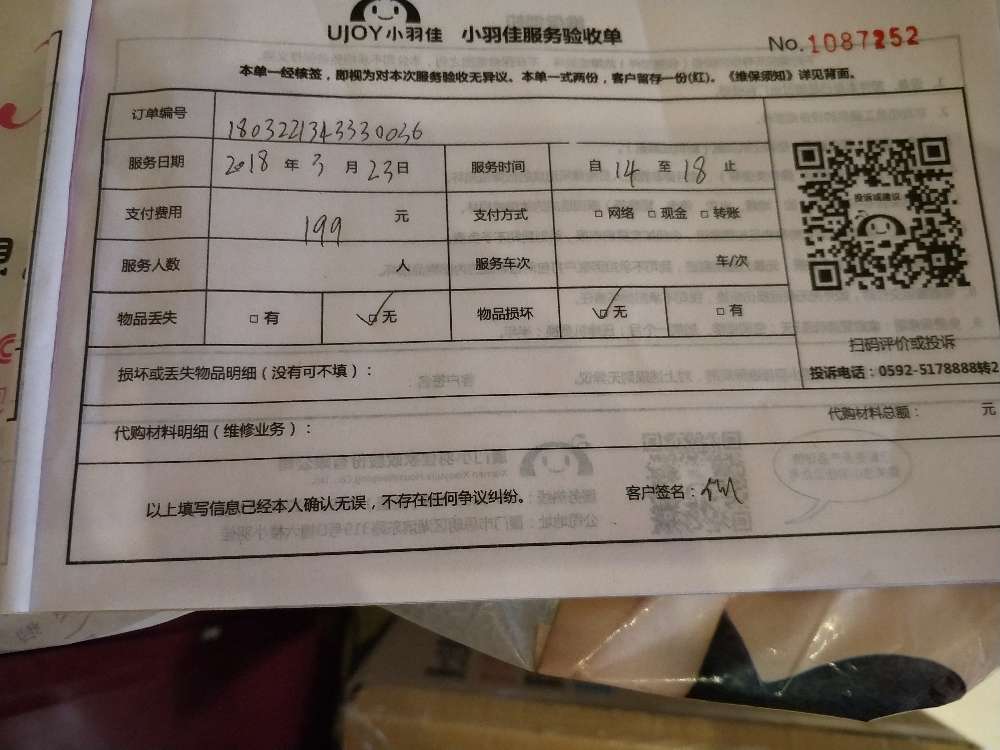 UJOY小羽佳 小羽佳服务验收单
No.1087252
本单一经核签，即视为对本次服务验收无异议。本单一式两份，客户留存一份(红)。《维保须知》详见背面。
订单编号 1803221343330036
服务日期 2018 年 3 月 23 日 服务时间 自 14 至 18 止
投诉或建议
支付费用 199 元 支付方式 □ 网络 □ 现金 □ 转账
服务人数 人 服务车次 车/次
物品丢失 □ 有 ☑ 无 物品损坏 ☑ 无 □ 有
扫码评价或投诉
投诉电话：0592-5178888转2
损坏或丢失物品明细（没有可不填）：
代购材料明细（维修业务）： 代购材料总额： 元
以上填写信息已经本人确认无误，不存在任何争议纠纷。 客户签名：